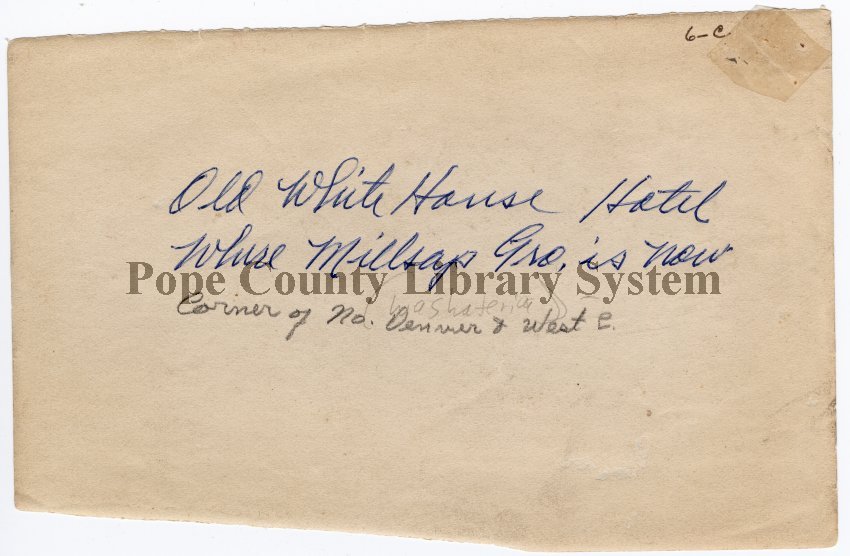 6-C
Old White House Hotel
Where Millsap Gro. is now
Pope County Library System
(Washateria)
Corner of No. Denver & West C.